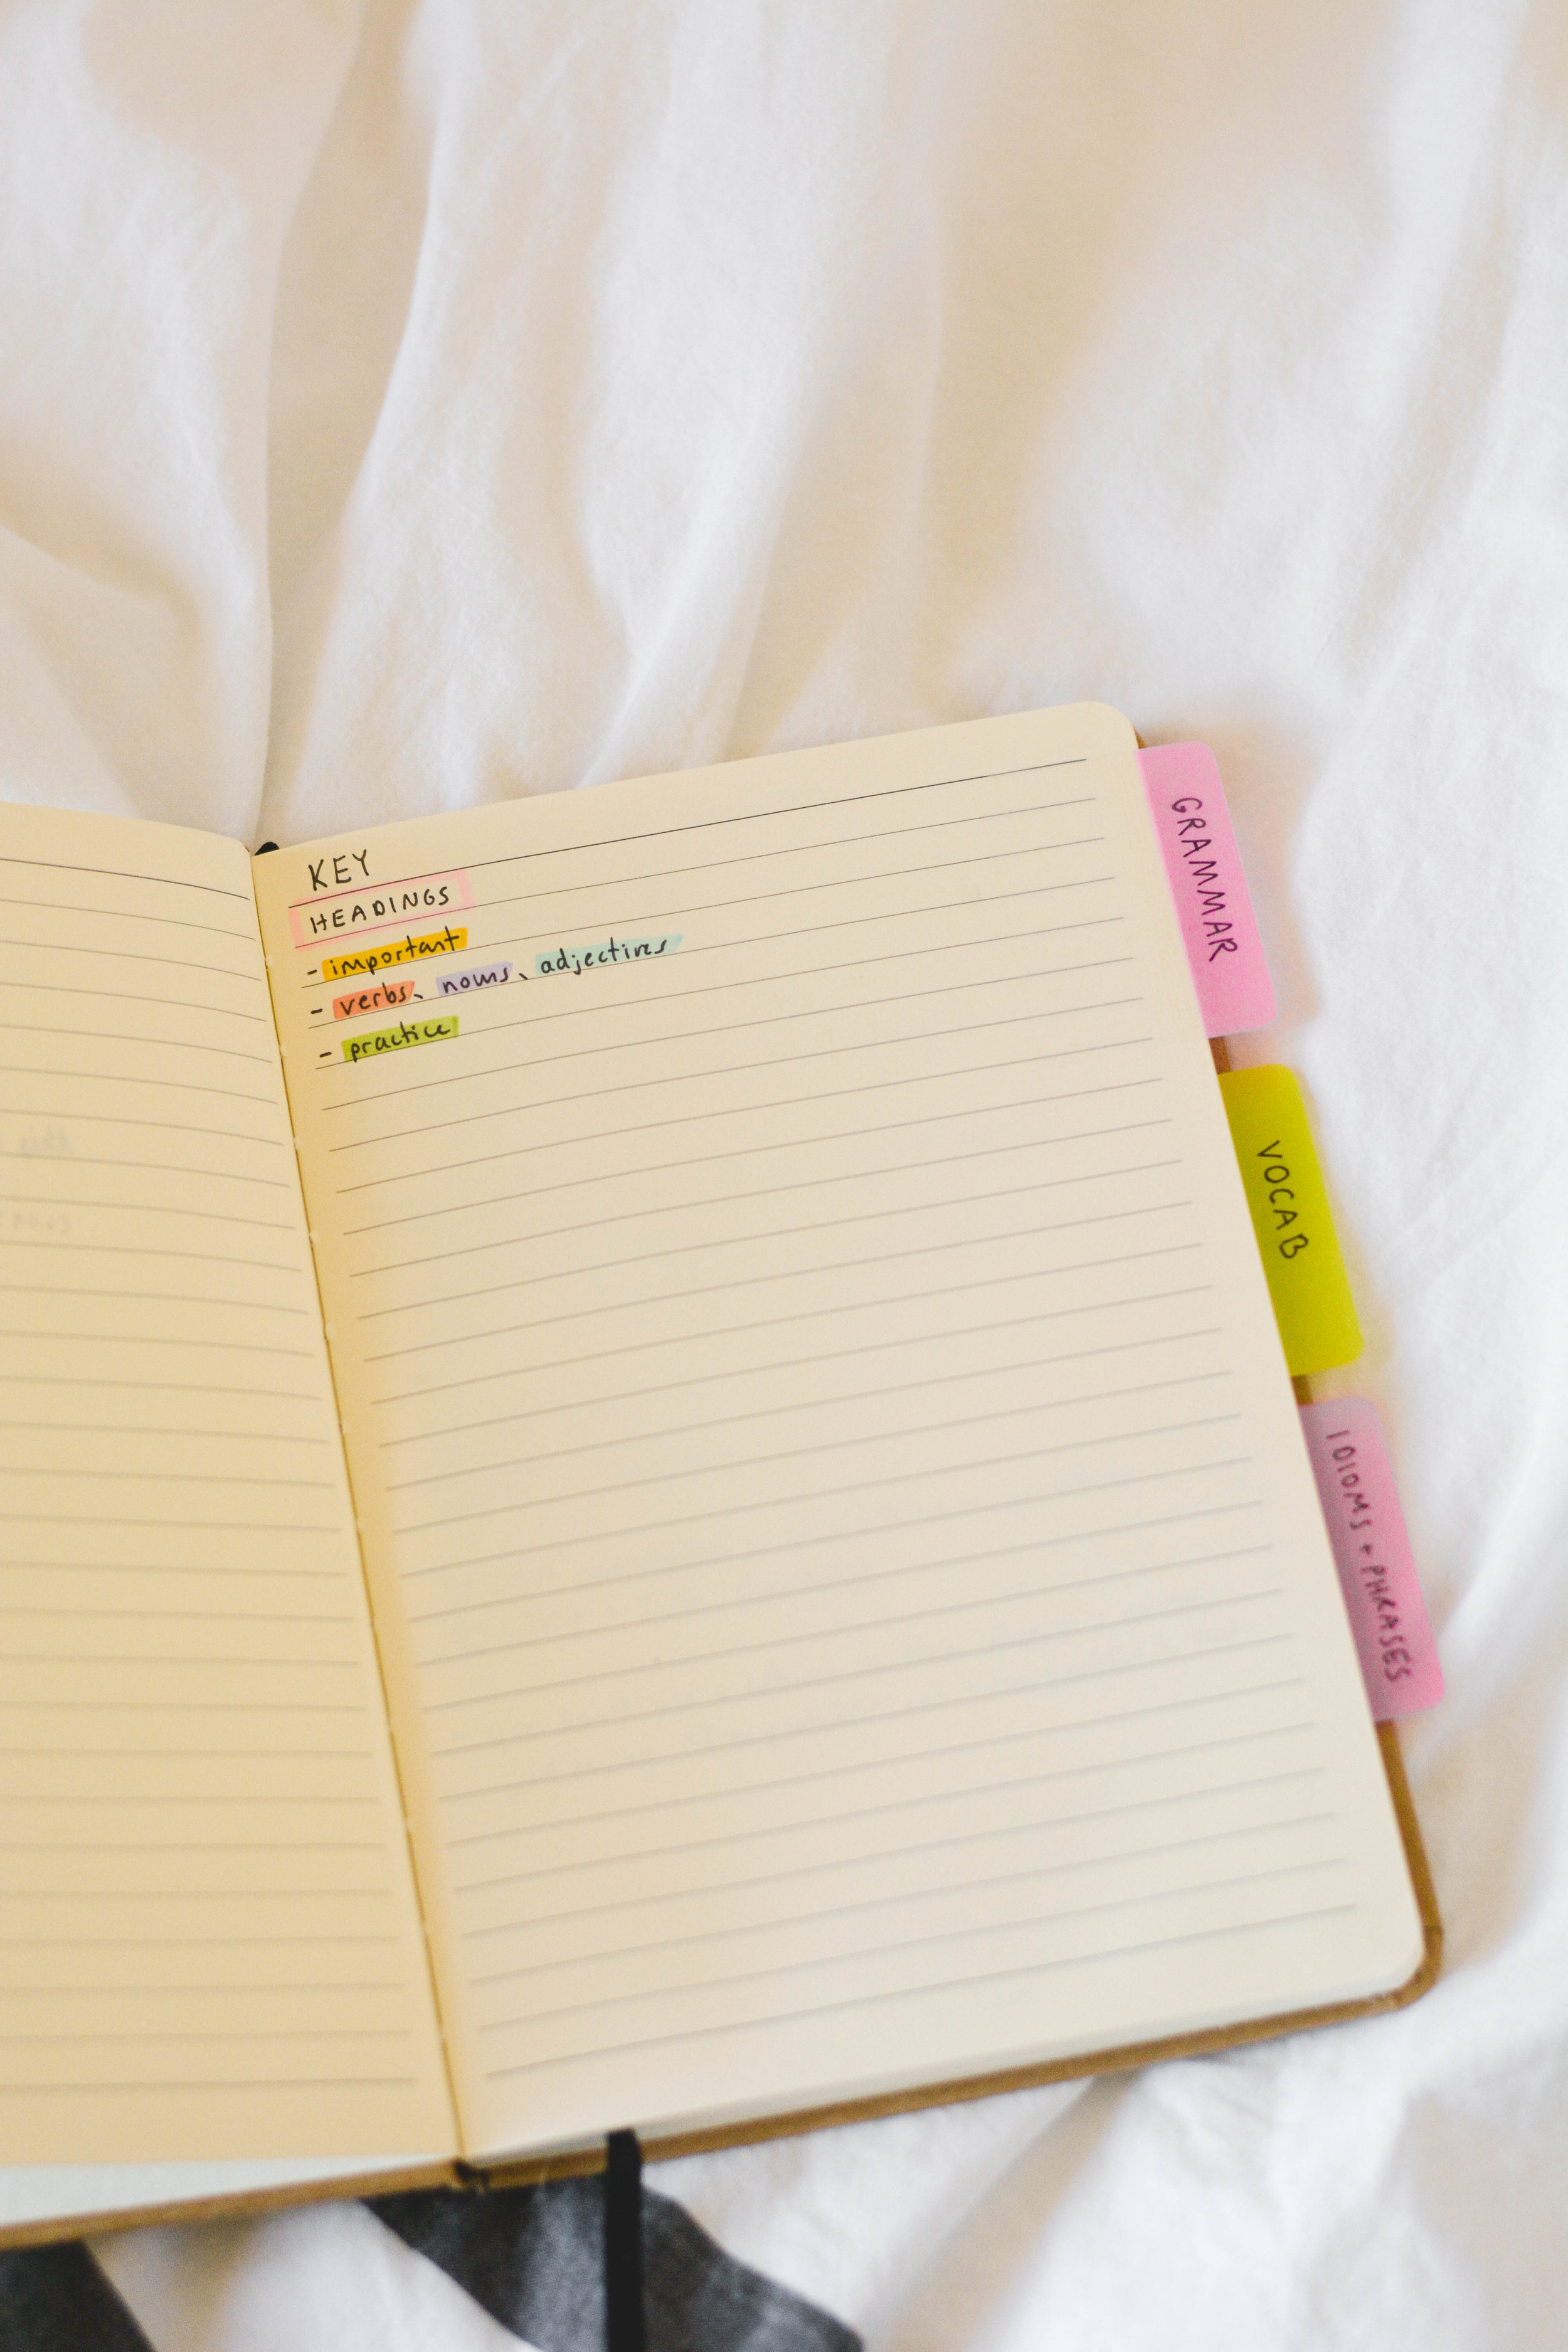 KEY
HEADINGS
- important
- verbs、nouns、adjectives
- practice
GRAMMAR
VOCAB
IDIOMS + PHRASES